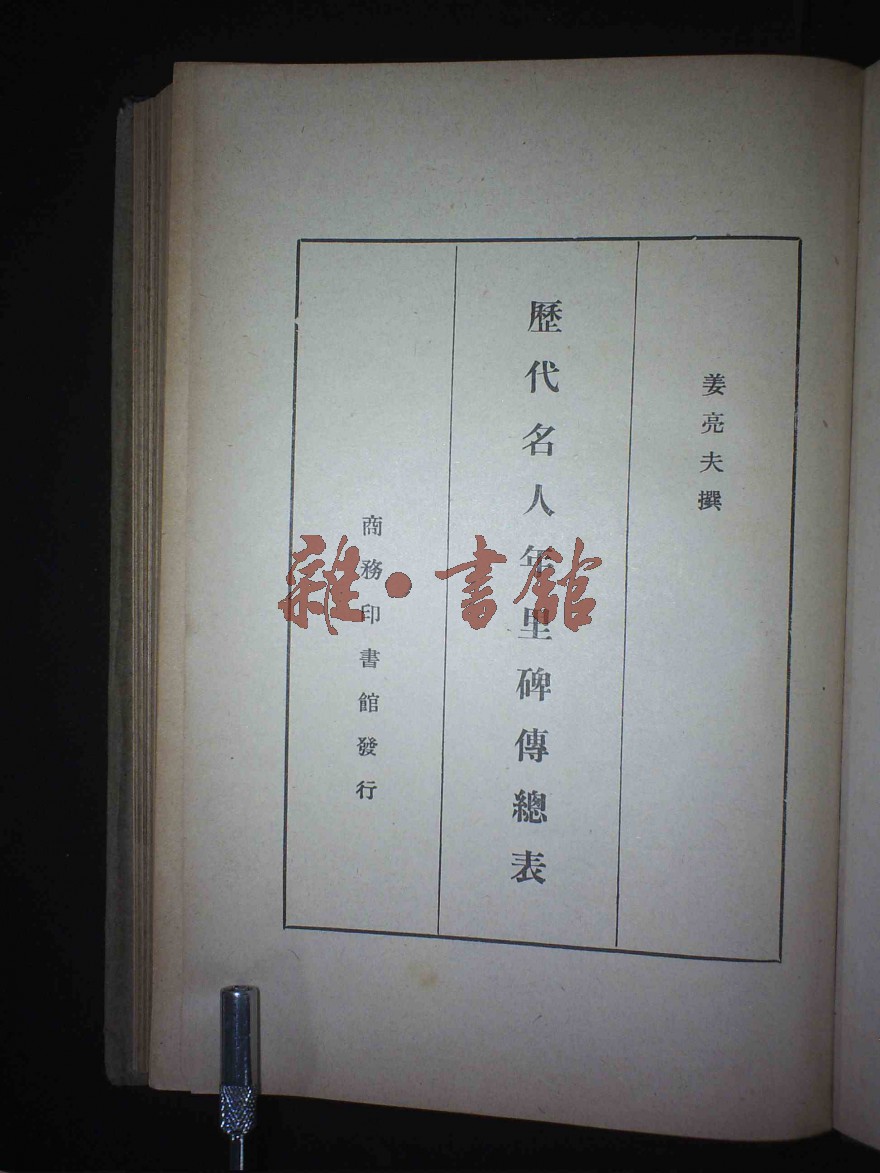 姜亮夫撰
歷代名人年里碑傳總表
商務印書館發行
雜·書館